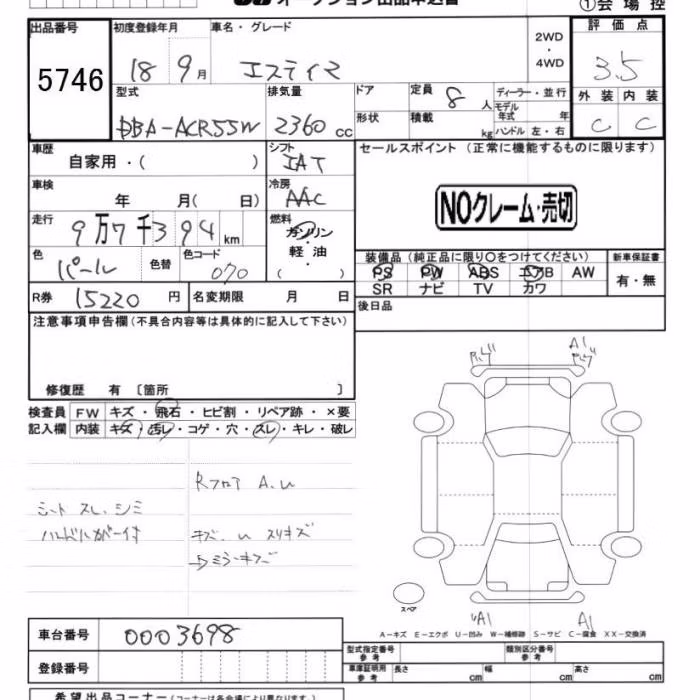 オークション出品申込書
①会場控
出品番号 初度登録年月 車名・グレード 2WD・4WD 評価点
5746 18 9月 エスティマ 3.5
型式 排気量 ドア 定員 8人 ディーラー・並行 外装 内装
形状 積載 kg モデル年式 年 ハンドル 左・右
DBA-ACR55W 2360cc C C
車歴 自家用・( ) シフト IAT セールスポイント (正常に機能するものに限ります)
車検 年 月( 日) 冷房 AAC
NOクレーム・売切
走行 9万7千394km 燃料 ガソリン・軽油 ( )
色 パール 色替 色コード 070
装備品 (純正品に限り○をつけてください) 新車保証書
PS PW ABS エアB AW 有・無
SR ナビ TV カワ
R券 15220円 名変期限 月 日 後日品
注意事項申告欄(不具合内容等は具体的に記入して下さい)
修復歴 有 〔箇所 〕
検査員記入欄 FW キズ・飛石・ヒビ割・リペア跡・×要
内装 キズ・汚レ・コゲ・穴・スレ・キレ・破レ
A1
RフロアA.U
シート スレ、シミ
キズ、U スリキズ
スペア
A1 A1
A-キズ E-エクボ U-凹み W-補修跡 S-サビ C-腐食 XX-交換済
車台番号 0003698
型式指定番号 参考 類別区分番号 参考
登録番号 車庫証明用 参考 長さ cm 幅 cm 高さ cm
希望出品コーナー(コーナーは各会場により異なります)